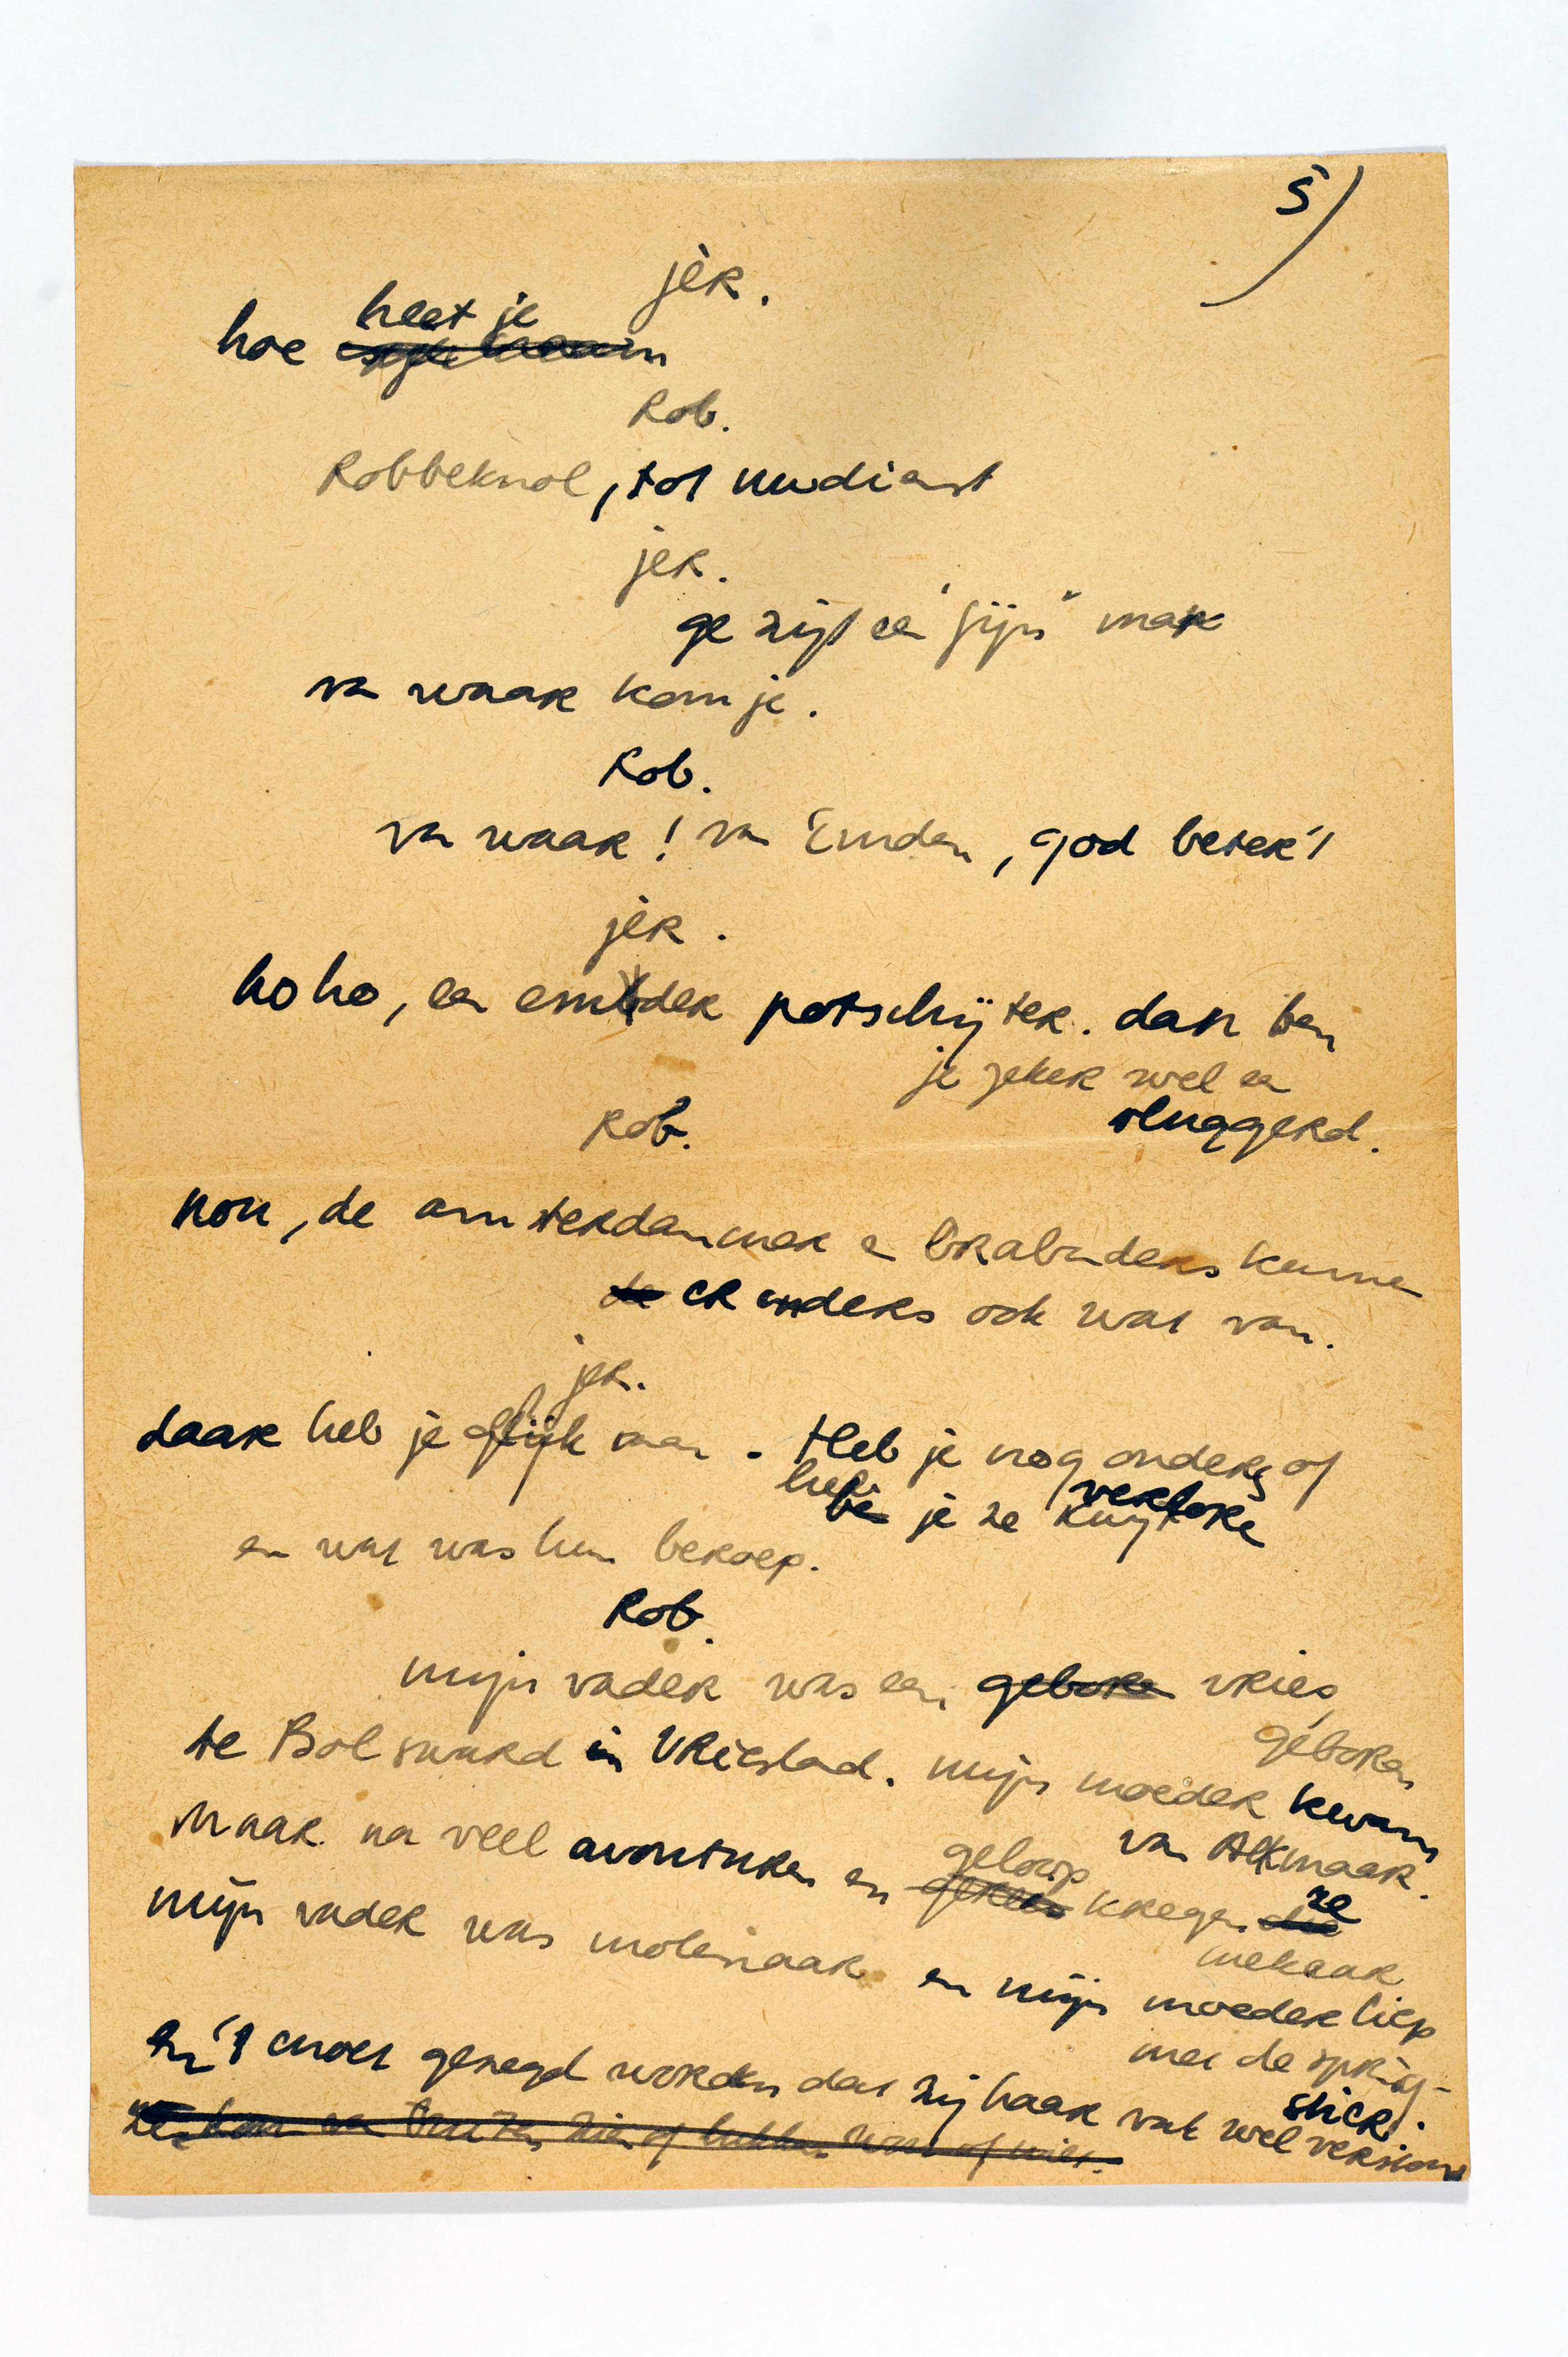 5)
jèr.
heet je
hoe
Rob.
Robbeknol, tot uwdienst
jer.
ge zijt een "fijn" man
van waar kom je.
Rob.
van waar! van Emden, god beter't
jèr.
hoho, een emder potschijter. dan ben
je zeker wel een
sluggerd.
Rob.
nou, de amsterdammer en brabanders kunnen
de er anders ook wat van.
jer.
daar heb je glijk aan. Heb je nog ouders of
heb
ben je ze kwijt
verlore
en wat was hun beroep.
Rob.
mijn vader was een geboren vries,
geboren
te Bolsward in Vriesland. mijn moeder kwam
van Alkmaar.
maar na veel avonturen en geloop kregen ze
mekaar
mijn vader was molenaar en mijn moeder liep
met de spring-
stick.
en 't moet gezegd worden dat zij haar vak wel verstond